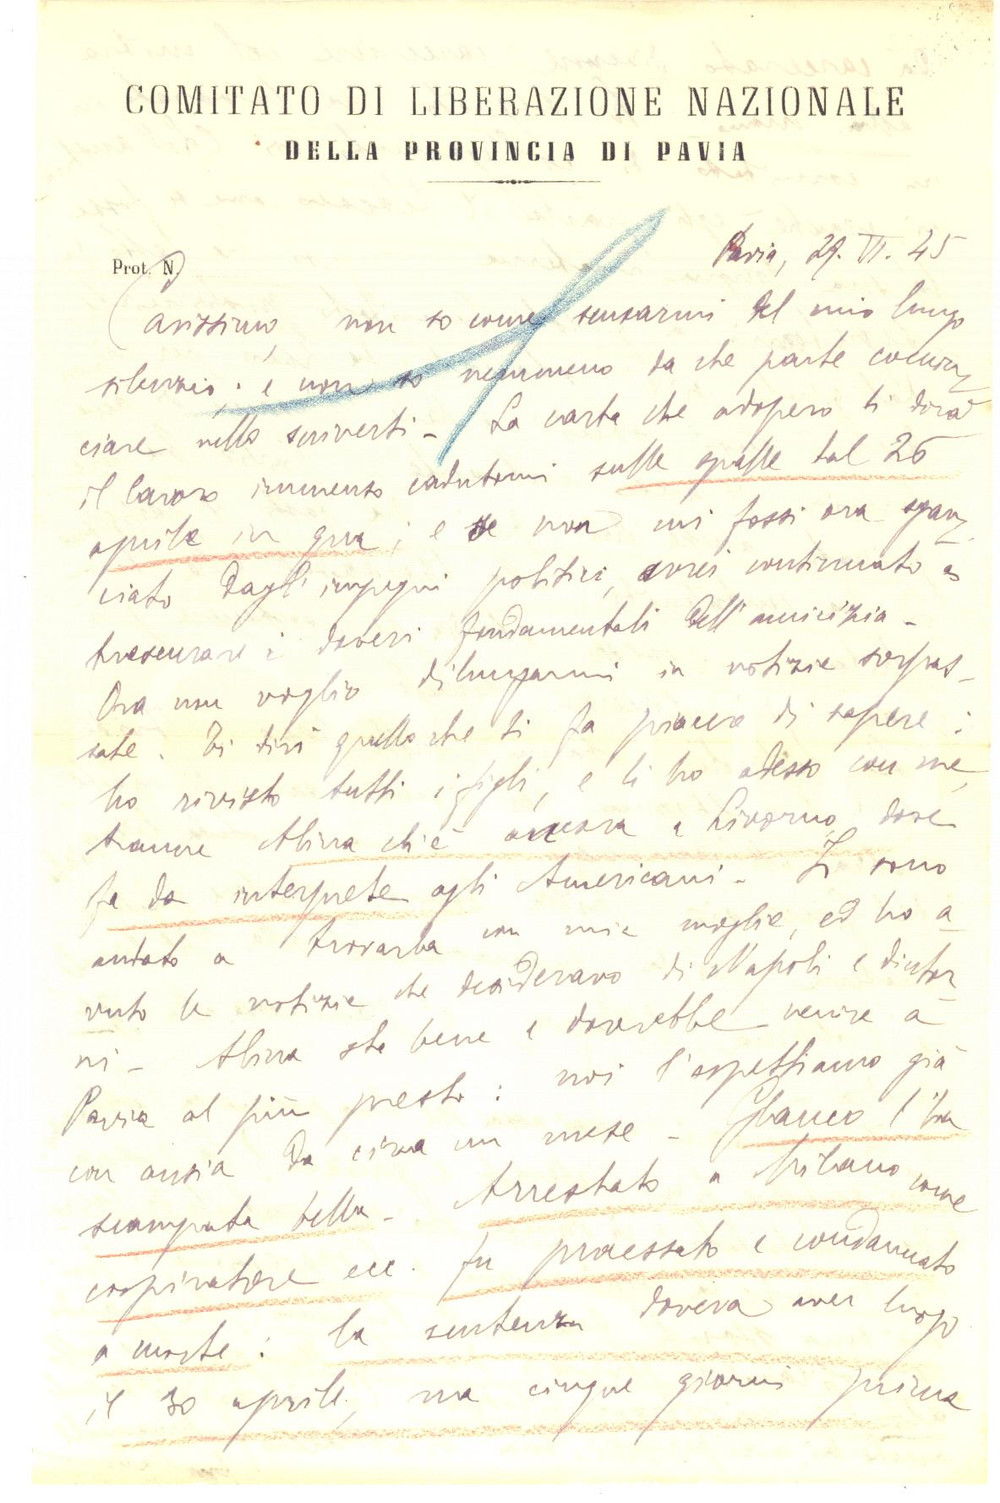 COMITATO DI LIBERAZIONE NAZIONALE
DELLA PROVINCIA DI PAVIA
Prot. N.
Pavia, 29. VI. 45
Carissimo, non so come scusarmi del mio lungo
silenzio: e non so nemmeno da che parte comin-
ciare nello scriverti - La carta che adopero ti dirà
il lavoro immenso cadutomi sulle spalle dal 26
aprile in qua; e se non mi fossi ora sgan-
ciato dagli impegni politici, avrei continuato a
trascurare i doveri fondamentali dell'amicizia -
Ora non voglio dilungarmi in notizie sorpas-
sate. Ti dirò quello che ti fa piacere di sapere:
ho rivisto tutti i figli, e li ho adesso con me,
tranne Albina ch'è ancora a Livorno, dove
fa da interprete agli Americani - Io sono
andato a trovarla con mia moglie, ed ho a-
vuto le notizie che desideravo di Napoli e dintor-
ni - Albina sta bene e dovrebbe venire a
Pavia al più presto: noi l'aspettiamo già
con ansia da circa un mese - Glauco l'ha
scampata bella - Arrestato a Milano come
cospiratore ecc. fu processato e condannato
a morte: la sentenza doveva aver luogo
il 30 aprile, ma cinque giorni prima